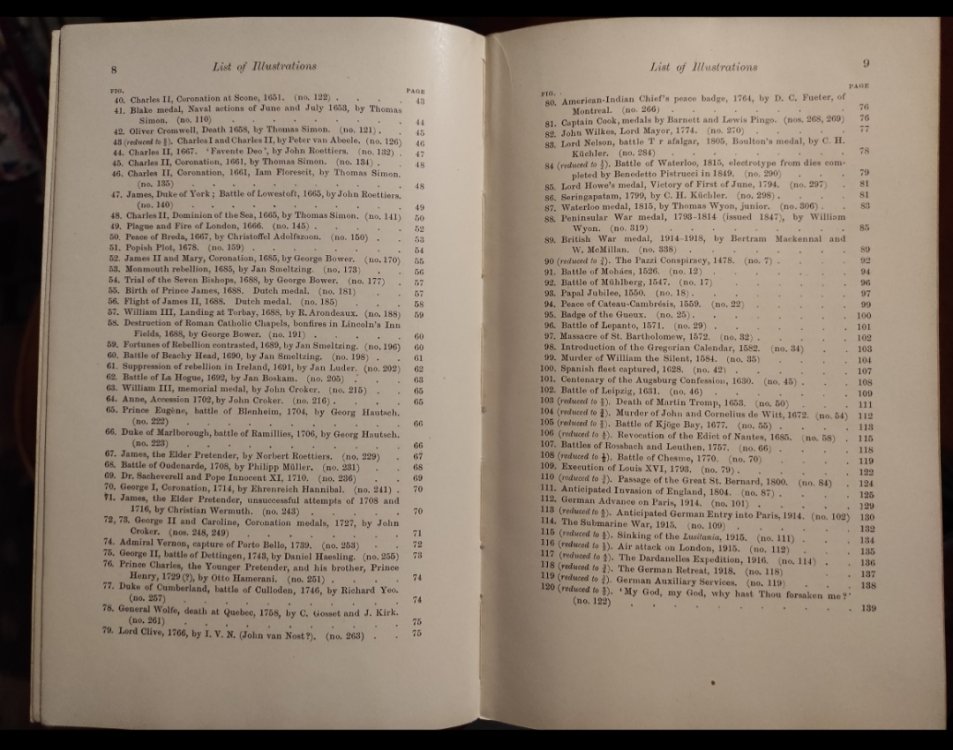 8
List of Illustrations
FIG. PAGE
40. Charles II, Coronation at Scone, 1651. (no. 122) . . . 43
41. Blake medal, Naval actions of June and July 1653, by Thomas
Simon. (no. 110) . . . . . . . . 44
42. Oliver Cromwell, Death 1658, by Thomas Simon. (no. 121) . . 45
43 (reduced to). Charles I and Charles II, by Peter van Abeele. (no. 126) 46
44. Charles II, 1667. ‘Favente Deo’, by John Roettiers. (no. 132) . 47
45. Charles II, Coronation, 1661, by Thomas Simon. (no. 134) . . 48
46. Charles II, Coronation, 1661, Iam Florescit, by Thomas Simon.
(no. 135) . . . . . . . . . 48
47. James, Duke of York; Battle of Lowestoft, 1665, by John Roettiers.
(no. 140) . . . . . . . . . 49
48. Charles II, Dominion of the Sea, 1665, by Thomas Simon. (no. 141) 50
49. Plague and Fire of London, 1666. (no. 145) . . . . 52
50. Peace of Breda, 1667, by Christoffel Adolfszoon. (no. 150) . . 53
51. Popish Plot, 1678. (no. 159) . . . . . . 54
52. James II and Mary, Coronation, 1685, by George Bower. (no. 170) 55
53. Monmouth rebellion, 1685, by Jan Smeltzing. (no. 173) . . 56
54. Trial of the Seven Bishops, 1688, by George Bower. (no. 177) . 57
55. Birth of Prince James, 1688. Dutch medal. (no. 181) . . 57
56. Flight of James II, 1688. Dutch medal. (no. 185) . . . 58
57. William III, Landing at Torbay, 1688, by R. Arondeaux. (no. 188) 59
58. Destruction of Roman Catholic Chapels, bonfires in Lincoln's Inn
Fields, 1688, by George Bower. (no. 191) . . . . 60
59. Fortunes of Rebellion contrasted, 1689, by Jan Smeltzing. (no. 196) 60
60. Battle of Beachy Head, 1690, by Jan Smeltzing. (no. 198) . . 61
61. Suppression of rebellion in Ireland, 1691, by Jan Luder. (no. 202) 62
62. Battle of La Hogue, 1692, by Jan Boskam. (no. 205) . . . 63
63. William III, memorial medal, by John Croker. (no. 215) . . 65
64. Anne, Accession 1702, by John Croker. (no. 216) . . . . 65
65. Prince Eugène, battle of Blenheim, 1704, by Georg Hautsch.
(no. 222) . . . . . . . . . 66
66. Duke of Marlborough, battle of Ramillies, 1706, by Georg Hautsch.
(no. 223) . . . . . . . . . 66
67. James, the Elder Pretender, by Norbert Roettiers. (no. 229) . 67
68. Battle of Oudenarde, 1708, by Philipp Müller. (no. 231) . . 68
69. Dr. Sacheverell and Pope Innocent XI, 1710. (no. 236) . . 69
70. George I, Coronation, 1714, by Ehrenreich Hannibal. (no. 241) . 70
71. James, the Elder Pretender, unsuccessful attempts of 1708 and
1716, by Christian Wermuth. (no. 243) . . . . 70
72, 73. George II and Caroline, Coronation medals, 1727, by John
Croker. (nos. 248, 249) . . . . . . . 71
74. Admiral Vernon, capture of Porto Bello, 1739. (no. 253) . . 72
75. George II, battle of Dettingen, 1743, by Daniel Haesling. (no. 255) 73
76. Prince Charles, the Younger Pretender, and his brother, Prince
Henry, 1729 (?), by Otto Hamerani. (no. 251) . . . 74
77. Duke of Cumberland, battle of Culloden, 1746, by Richard Yeo.
(no. 257) . . . . . . . . . 74
78. General Wolfe, death at Quebec, 1758, by C. Gosset and J. Kirk.
(no. 261) . . . . . . . . . 75
79. Lord Clive, 1766, by I. V. N. (John van Nost?). (no. 263) . . 75
List of Illustrations
9
FIG. PAGE
80. American-Indian Chief's peace badge, 1764, by D. C. Fueter, of
Montreal. (no. 266) . . . . . . . 76
81. Captain Cook, medals by Barnett and Lewis Pingo. (nos. 268, 269) 76
82. John Wilkes, Lord Mayor, 1774. (no. 270) . . . . 77
83. Lord Nelson, battle T r afalgar, 1805, Boulton's medal, by C. H.
Küchler. (no. 284) . . . . . . . 78
84 (reduced to). Battle of Waterloo, 1815, electrotype from dies com-
pleted by Benedetto Pistrucci in 1849. (no. 290) . . . 79
85. Lord Howe's medal, Victory of First of June, 1794. (no. 297) . 81
86. Seringapatam, 1799, by C. H. Küchler. (no. 298) . . . . 81
87. Waterloo medal, 1815, by Thomas Wyon, junior. (no. 306) . . 83
88. Peninsular War medal, 1793-1814 (issued 1847), by William
Wyon. (no. 319) . . . . . . . 85
89. British War medal, 1914-1918, by Bertram Mackennal and
W. McMillan. (no. 338) . . . . . . 89
90 (reduced to). The Pazzi Conspiracy, 1478. (no. 7) . . . . 92
91. Battle of Mohács, 1526. (no. 12) . . . . . 94
92. Battle of Mühlberg, 1547. (no. 17) . . . . . 96
93. Papal Jubilee, 1550. (no. 18) . . . . . . 97
94. Peace of Cateau-Cambrésis, 1559. (no. 22) . . . . 99
95. Badge of the Gueux. (no. 25) . . . . . . 100
96. Battle of Lepanto, 1571. (no. 29) . . . . . 101
97. Massacre of St. Bartholomew, 1572. (no. 32) . . . . 102
98. Introduction of the Gregorian Calendar, 1582. (no. 34) . . 103
99. Murder of William the Silent, 1584. (no. 35) . . . 104
100. Spanish fleet captured, 1628. (no. 42) . . . . . 107
101. Centenary of the Augsburg Confession, 1630. (no. 45) . . . 108
102. Battle of Leipzig, 1631. (no. 46) . . . . . 109
103 (reduced to). Death of Martin Tromp, 1653. (no. 50) . . . 111
104 (reduced to). Murder of John and Cornelius de Witt, 1672. (no. 54) 112
105 (reduced to). Battle of Kjöge Bay, 1677. (no. 55) . . . 113
106 (reduced to). Revocation of the Edict of Nantes, 1685. (no. 58) . 115
107. Battles of Rossbach and Leuthen, 1757. (no. 66) . . . 118
108 (reduced to). Battle of Chesme, 1770. (no. 70) . . . 119
109. Execution of Louis XVI, 1793. (no. 79) . . . . . 122
110 (reduced to). Passage of the Great St. Bernard, 1800. (no. 84) . 124
111. Anticipated Invasion of England, 1804. (no. 87) . . . . 125
112. German Advance on Paris, 1914. (no. 101) . . . . 129
113 (reduced to). Anticipated German Entry into Paris, 1914. (no. 102) 130
114. The Submarine War, 1915. (no. 109) . . . . . 132
115 (reduced to). Sinking of the Lusitania, 1915. (no. 111) . . 134
116 (reduced to). Air attack on London, 1915. (no. 112) . . . 135
117 (reduced to). The Dardanelles Expedition, 1916. (no. 114) . . 136
118 (reduced to). The German Retreat, 1918. (no. 118) . . . 137
119 (reduced to). German Auxiliary Services. (no. 119) . . . 138
120 (reduced to). ‘My God, my God, why hast Thou forsaken me?’
(no. 122) . . . . . . . . . 139